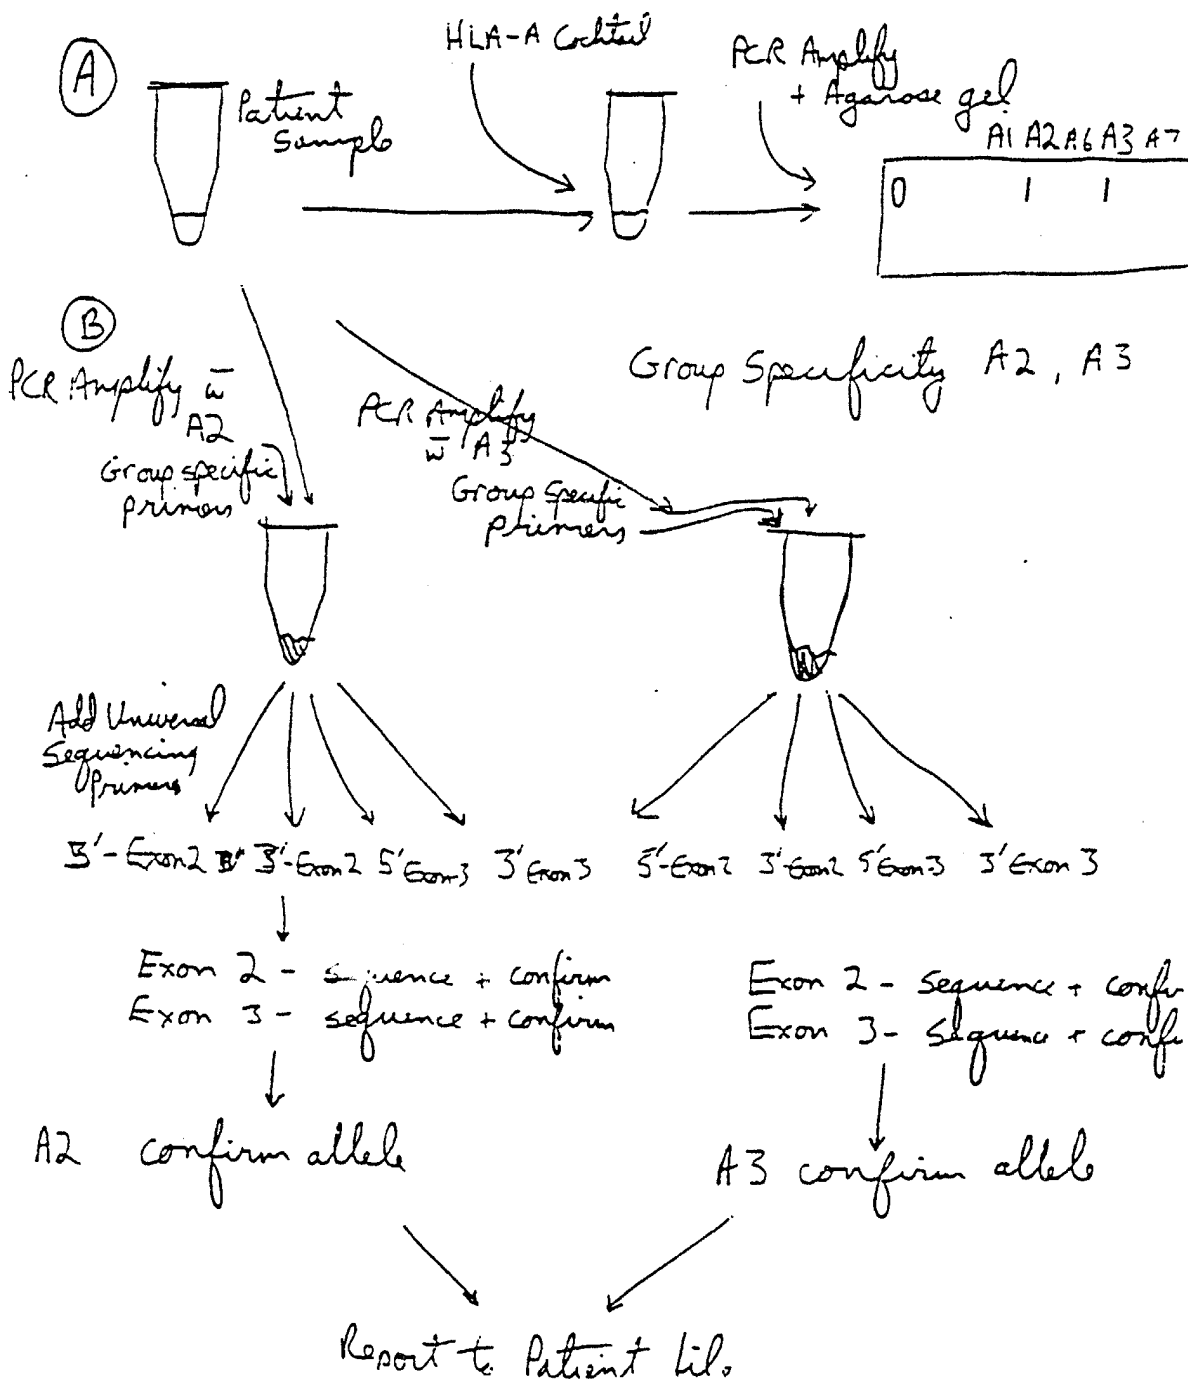 A
HLA-A Cocktail
PCR Amplify
+ Agarose gel
Patient
Sample
A1 A2 A6 A3 A7
0 1 1
B
PCR Amplify w̄
A2
Group specific
primers
PCR Amplify
w̄ A3
Group Specific
primers
Group Specificity A2, A3
Add Universal
Sequencing
Primers
5'-Exon2 3'-Exon2 5'Exon-3 3'Exon3
5'-Exon2 3'-Exon2 5'Exon-3 3'Exon 3
Exon 2 - sequence + confirm
Exon 3 - sequence + confirm
Exon 2 - sequence + confir
Exon 3 - sequence + confi
A2 confirm allele
A3 confirm allele
Report to Patient